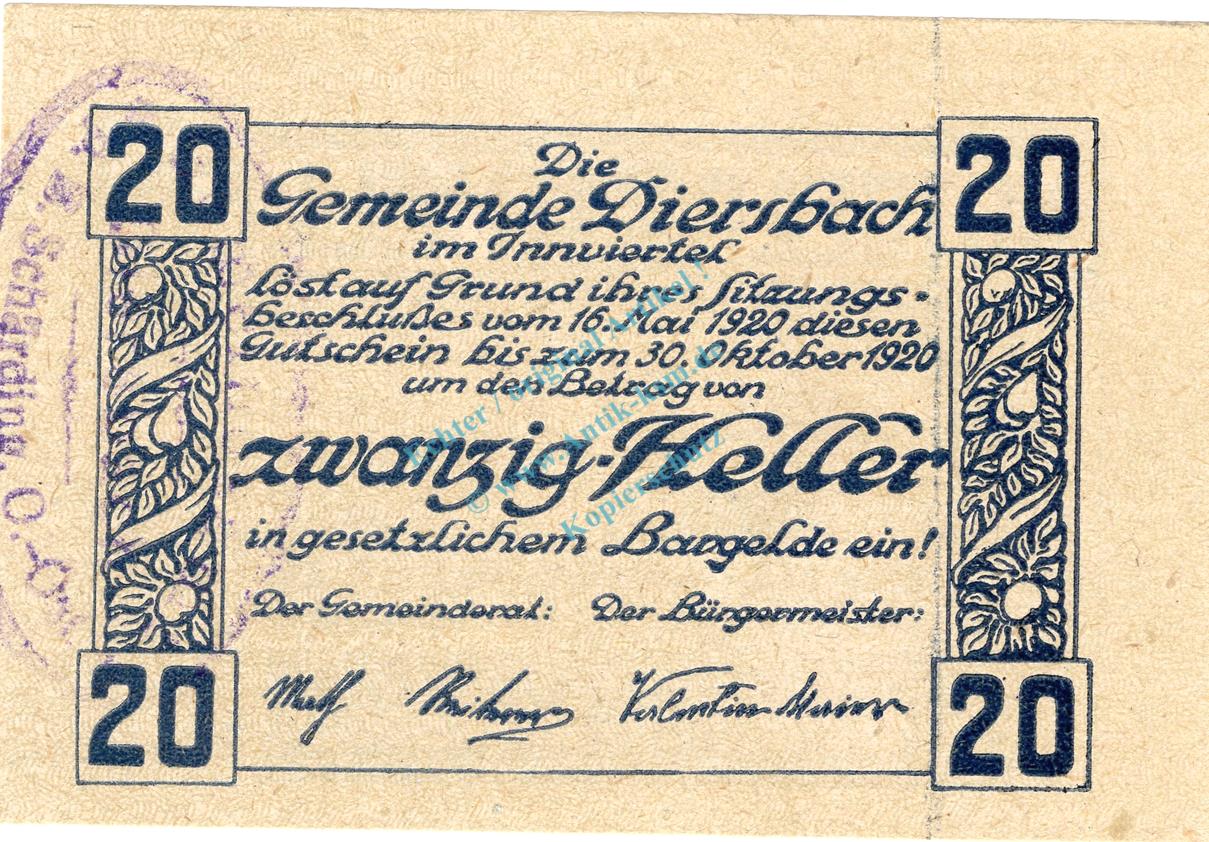 20
20
Die
Gemeinde Diersbach
im Innviertel
löst auf Grund ihres Sitzungs-
beschlußes vom 16. Mai 1920 diesen
Gutschein bis zum 30. Oktober 1920
um den Betrag von
zwanzig-Heller
in gesetzlichem Bargelde ein!
Der Gemeinderat: Der Bürgermeister:
Math
Valentin Maier
20
20
Schärding, O.
Echter / original Artikel !
© www.Antik-kam.de
Kopierschutz